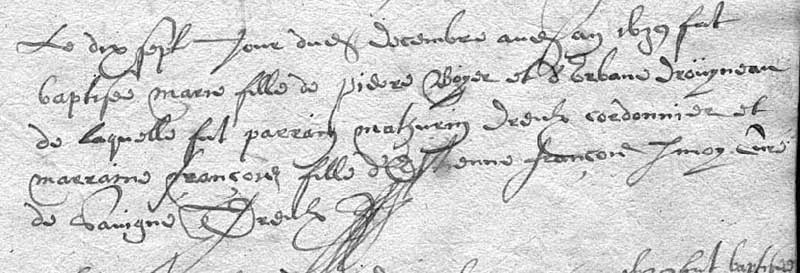 Le dix sept Jour dud decembre aud an 1639 fut
baptisée marie fille de pierre Boyer et d'urbane droüyneau
de laquelle fut parrain mathurin dreux cordonnier et
marraine françoise fille d'Estienne françois par moy Curé
de Sauigne Dreux
fut baptisée